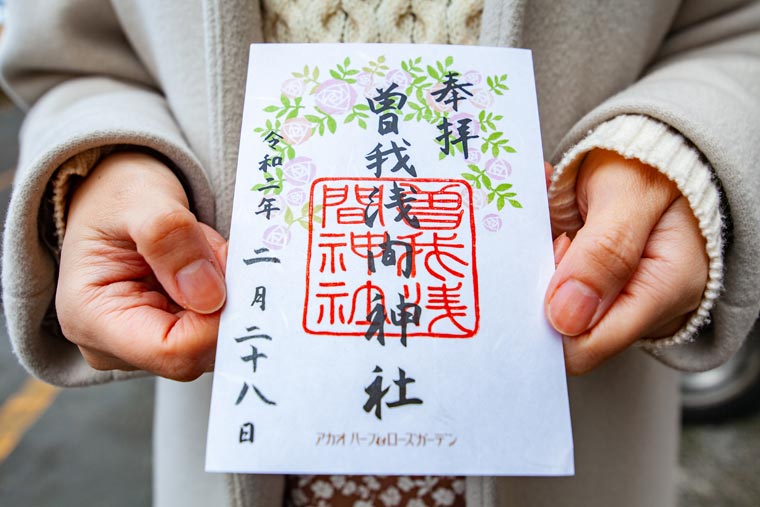 奉拝
曽我浅間神社
曽我浅
間神社
令和二年 二月二十八日
アカオ ハーブ&ローズガーデン